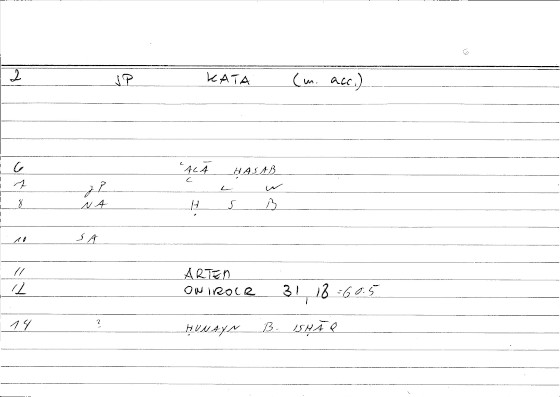 2 JP KATA (m. acc.)
6 ʿALĀ ḤASAB
7 JP ʿ L W
8 NA Ḥ S B
10 SA
11 ARTEM
12 ONIROCR 31,18 =60.5
14 ? ḤUNAYN B. ISḤĀQ